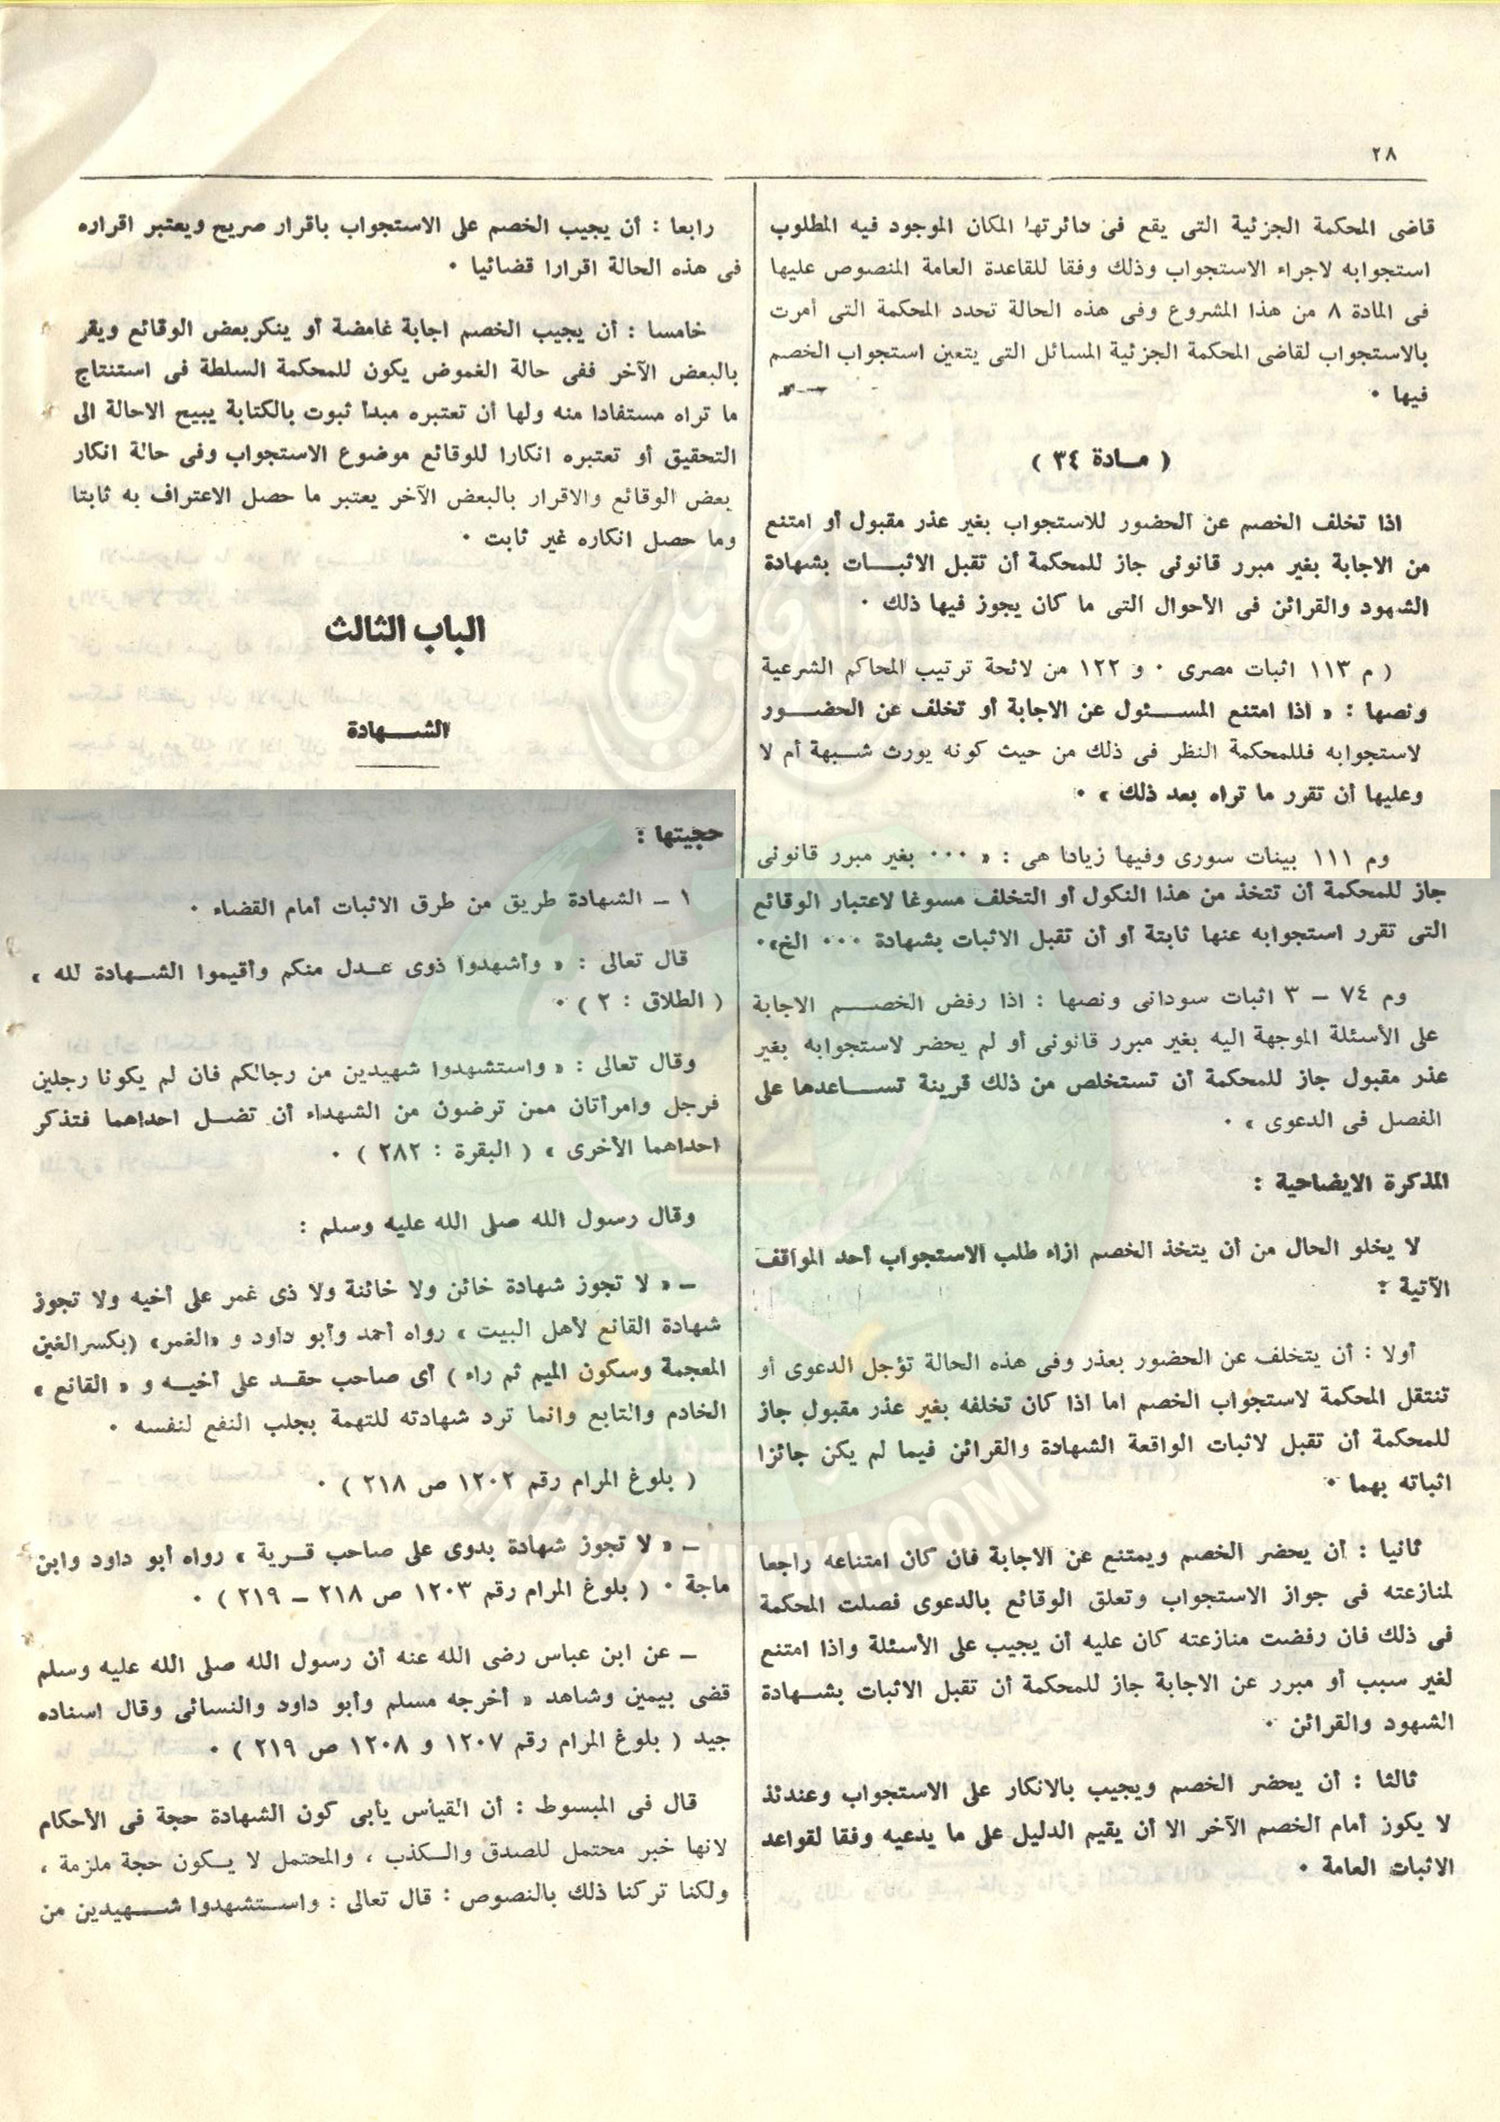 ٢٨
قاضى المحكمة الجزئية التى يقع فى دائرتها المكان الموجود فيه المطلوب
استجوابه لاجراء الاستجواب وذلك وفقا للقاعدة العامة المنصوص عليها
فى المادة ٨ من هذا المشروع وفى هذه الحالة تحدد المحكمة التى أمرت
بالاستجواب لقاضى المحكمة الجزئية المسائل التى يتعين استجواب الخصم
فيها ٠
( مــادة ٣٤ )
اذا تخلف الخصم عن الحضور للاستجواب بغير عذر مقبول أو امتنع
من الاجابة بغير مبرر قانونى جاز للمحكمة أن تقبل الاثبــات بشهادة
الشهود والقرائن فى الأحوال التى ما كان يجوز فيها ذلك ٠
( م ١١٣ اثبات مصرى ٠ و ١٢٢ من لائحة ترتيب المحاكم الشرعية
ونصها : « اذا امتنع المسـئول عن الاجابة أو تخلف عن الحضــور
لاستجوابه فللمحكمة النظر فى ذلك من حيث كونه يورث شـبهة أم لا
وعليها أن تقرر ما تراه بعد ذلك » ٠
وم ١١١ بينات سورى وفيها زيادا هى : « ٠٠٠ بغير مبرر قانونى
جاز للمحكمة أن تتخذ من هذا النكول أو التخلف مسوغا لاعتبار الوقائع
التى تقرر استجوابه عنها ثابتة أو أن تقبل الاثبات بشهادة ٠٠٠ الخ»٠
وم ٧٤ – ٣ اثبات سودانى ونصها : اذا رفض الخصــم الاجابة
على الأسئلة الموجهة اليه بغير مبرر قانونى أو لم يحضر لاستجوابه بغير
عذر مقبول جاز للمحكمة أن تستخلص من ذلك قرينة تســاعدها على
الفصل فى الدعوى » ٠
المذكرة الايضاحية :
لا يخلو الحال من أن يتخذ الخصم ازاء طلب الاستجواب أحد المواقف
الآتية :
أولا : أن يتخلف عن الحضور بعذر وفى هذه الحالة تؤجل الدعوى أو
تنتقل المحكمة لاستجواب الخصم اما اذا كان تخلفه بغير عذر مقبول جاز
للمحكمة أن تقبل لاثبات الواقعة الشهادة والقرائن فيما لم يكن جائزا
اثباته بهما ٠
ثانيا : أن يحضر الخصم ويمتنع عن الاجابة فان كان امتناعه راجعا
لمنازعته فى جواز الاستجواب وتعلق الوقائع بالدعوى فصلت المحكمة
فى ذلك فان رفضت منازعته كان عليه أن يجيب على الأسئلة واذا امتنع
لغير سبب أو مبرر عن الاجابة جاز للمحكمة أن تقبل الاثبات بشــهادة
الشهود والقرائن ٠
ثالثا : أن يحضر الخصم ويجيب بالانكار على الاستجواب وعندئذ
لا يكون أمام الخصم الآخر الا أن يقيم الدليل على ما يدعيه وفقا لقواعد
الاثبات العامة ٠
رابعا : أن يجيب الخصم على الاستجواب باقرار صريح ويعتبر اقراره
فى هذه الحالة اقرارا قضائيا ٠
خامسا : أن يجيب الخصم اجابة غامضة أو ينكربعض الوقائع ويقر
بالبعض الآخر ففى حالة الغموض يكون للمحكمة السلطة فى استنتاج
ما تراه مستفادا منه ولها أن تعتبره مبدأ ثبوت بالكتابة يبيح الاحالة الى
التحقيق أو تعتبره انكارا للوقائع موضوع الاستجواب وفى حالة انكار
بعض الوقائع والاقرار بالبعض الآخر يعتبر ما حصل الاعتراف به ثابتا
وما حصل انكاره غير ثابت ٠
الباب الثالث
الشــهادة
حجيتها :
١ – الشهادة طريق من طرق الاثبات أمام القضاء ٠
قال تعالى : « وأشهدوا ذوى عـدل منكم وأقيموا الشـهادة لله »
( الطلاق : ٢ ) ٠
وقال تعالى : « واستشهدوا شهيدين من رجالكم فان لم يكونا رجلين
فرجل وامرأتان ممن ترضون من الشهداء أن تضـل احداهما فتذكر
احداهما الأخرى » ( البقرة : ٢٨٢ ) ٠
وقال رسول الله صلى الله عليه وسلم :
– « لا تجوز شهادة خائن ولا خائنة ولا ذى غمر على أخيه ولا تجوز
شهادة القانع لأهل البيت » رواه أحمد وأبو داود و «الغمر» (بكسرالغين
المعجمة وسكون الميم ثم راء ) أى صاحب حقـد على أخيـه و « القانع »
الخادم والتابع وانما ترد شهادته للتهمة بجلب النفع لنفسه ٠
( بلوغ المرام رقم ١٢٠٢ ص ٢١٨ ) ٠
– « لا تجوز شهادة بدوى على صاحب قـرية » رواه أبو داود وابن
ماجة ٠ ( بلوغ المرام رقم ١٢٠٣ ص ٢١٨ – ٢١٩ ) ٠
– عن ابن عباس رضى الله عنه أن رسول الله صلى الله عليه وسلم
قضى بيمين وشاهد « أخرجه مسلم وأبو داود والنسائى وقال اسناده
جيد ( بلوغ المرام رقم ١٢٠٧ و ١٢٠٨ ص ٢١٩ ) ٠
قال فى المبسوط : أن القياس يأبى كون الشهادة حجة فى الأحكام
لانها خبر محتمل للصدق والـكذب ، والمحتمل لا يـكون حجة ملزمة ،
ولكنا تركنا ذلك بالنصوص : قال تعالى : واسـتشهدوا شــهيدين من